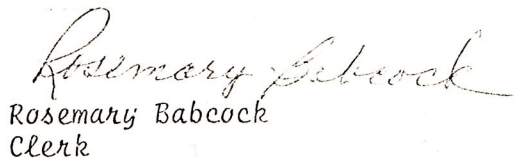 Rosemary Babcock
Rosemary Babcock
Clerk